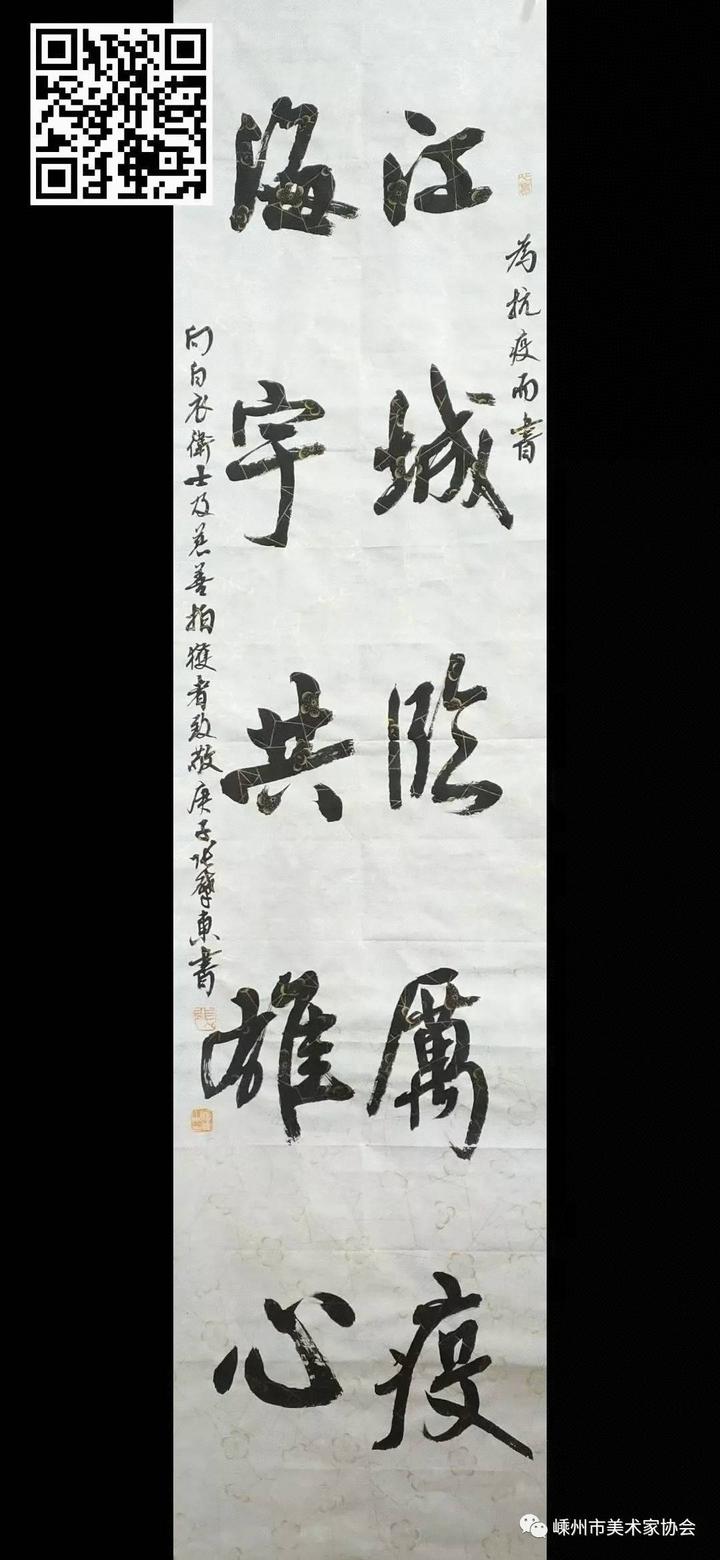 为抗疫而書
江城臨厲疫
海宇共雄心
向白衣衛士及慈善拍獲者致敬庚子張肇東書
嵊州市美术家协会